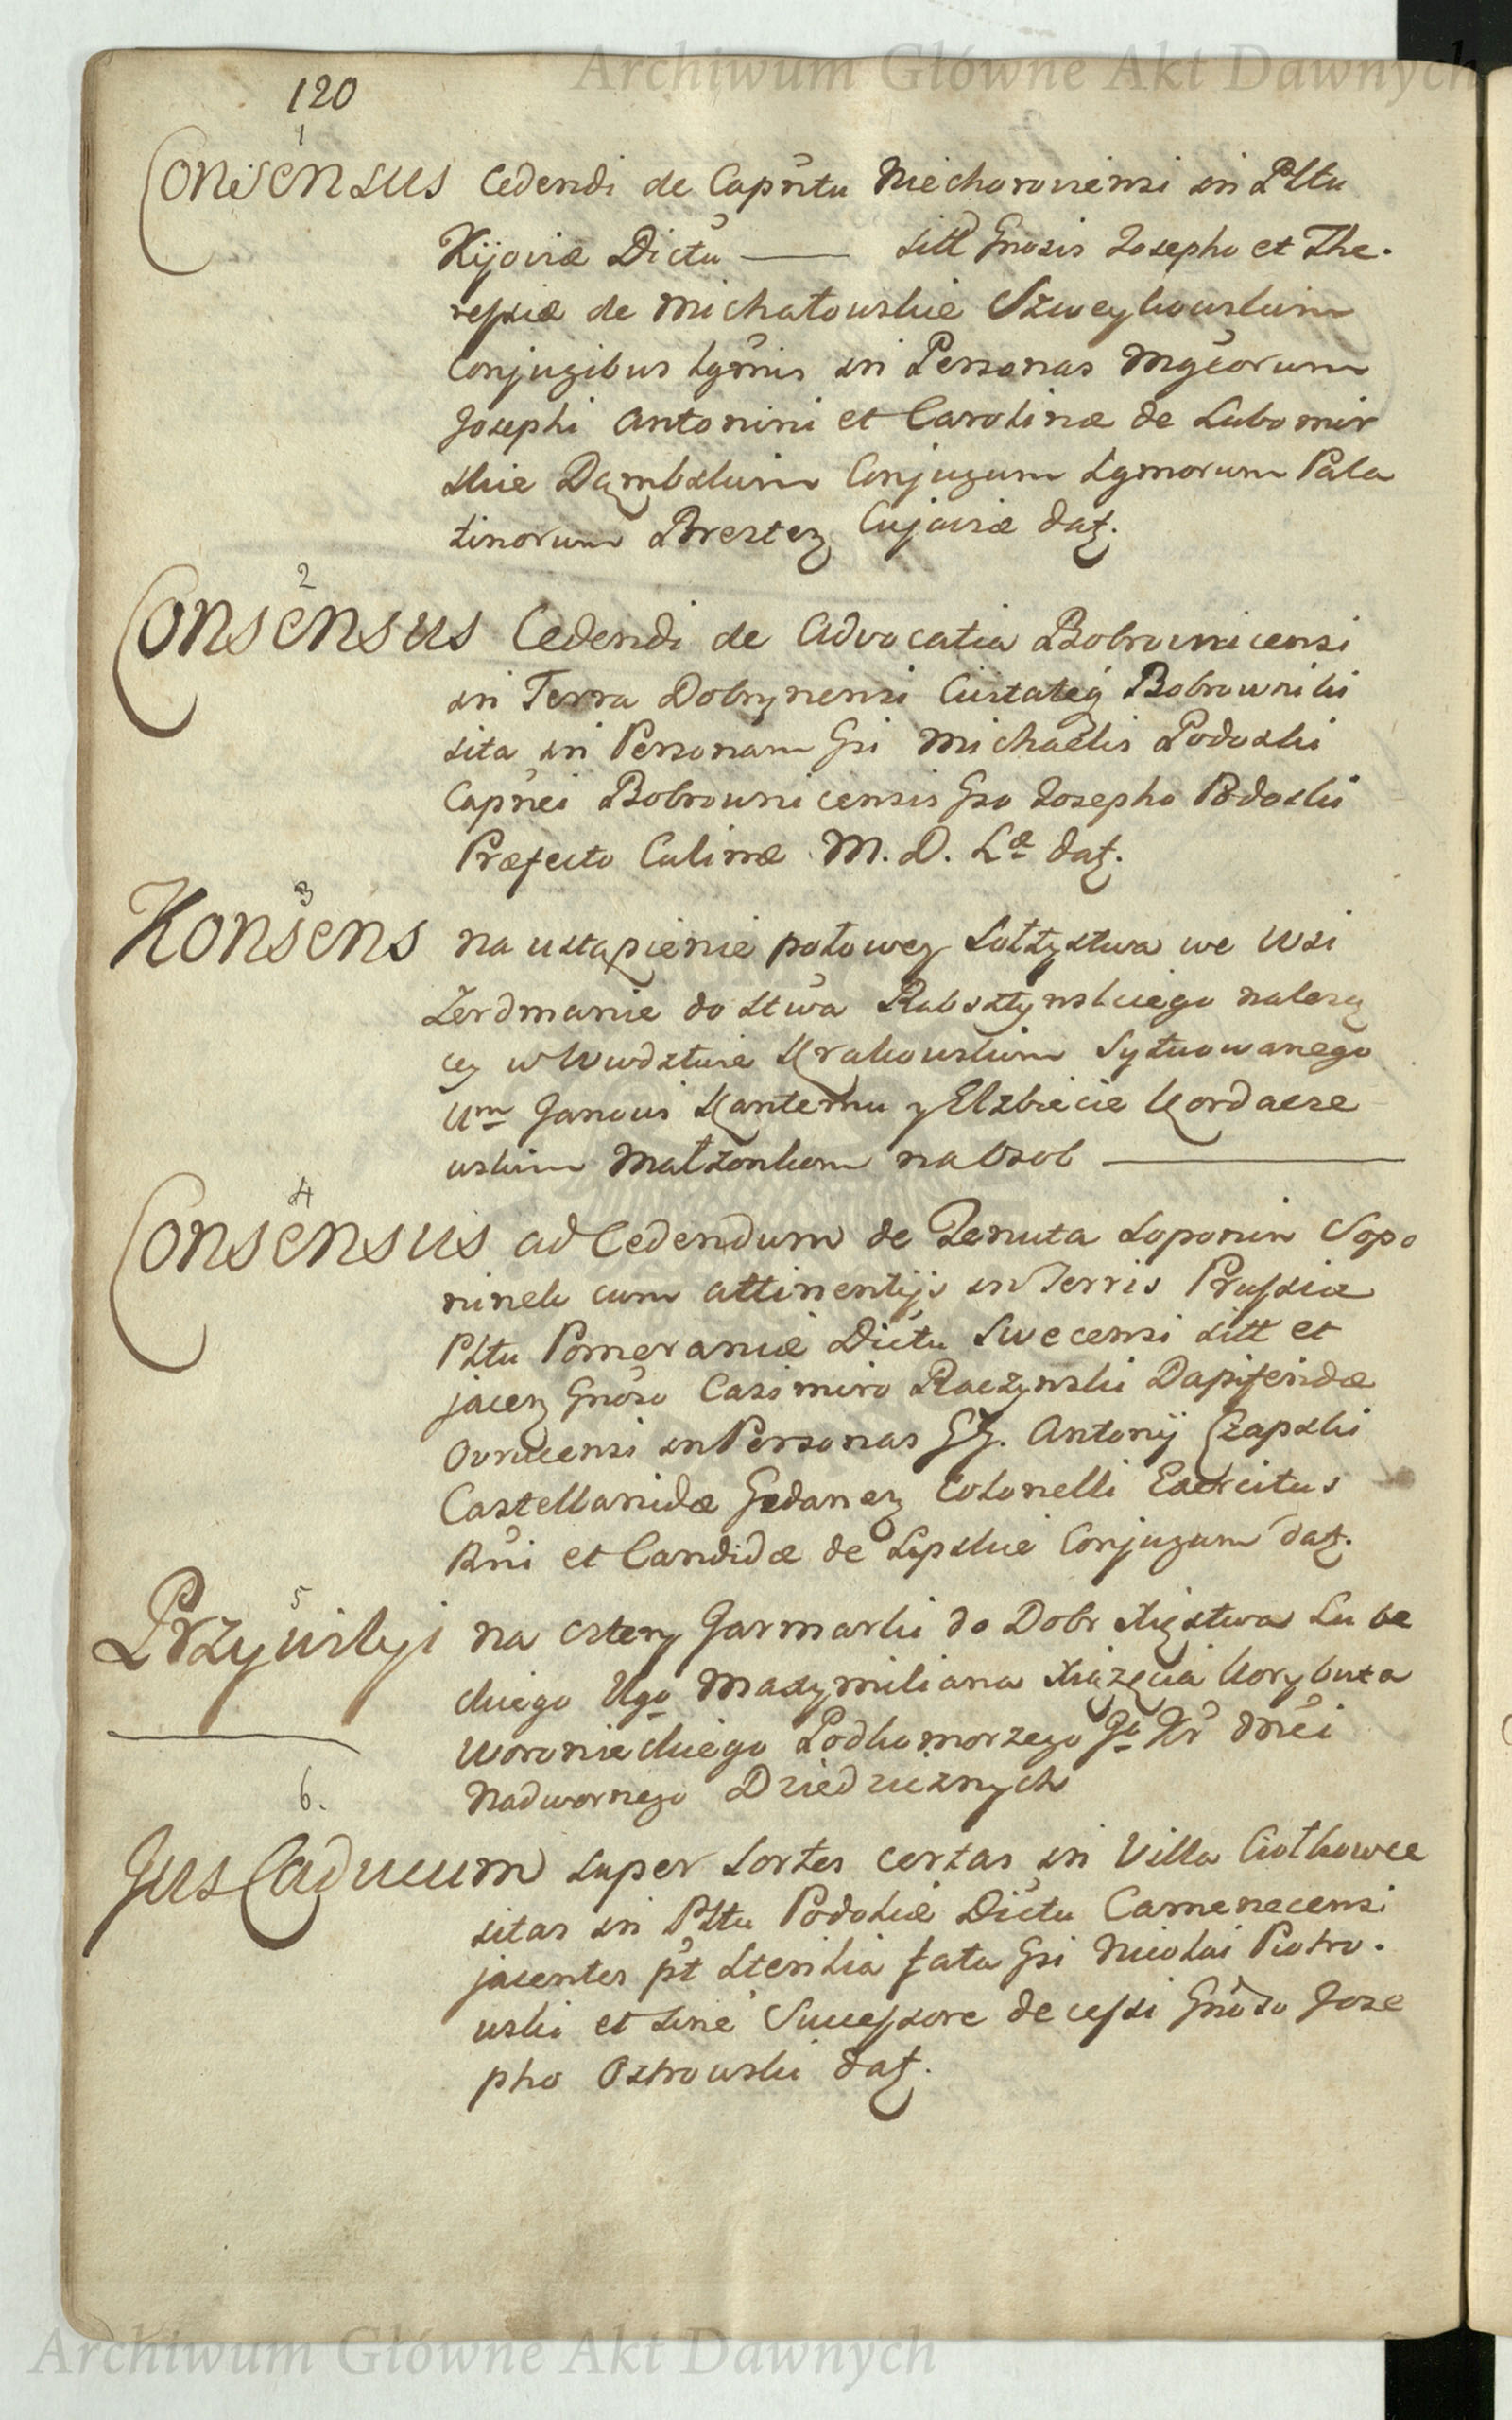 Archiwum Główne Akt Dawnych
120
1
Consensus Cedendi de Capntu Niechoroviensi in Pltu
Kijoviæ Dictu —— sitt Gnosis Josepho et The.
ressiæ de Michałowskie Szweykowskim
Conjugibus lgmis in Personas Mgcorum
Josephi Antonini et Carolinæ de Lubomir
skie Dąmbskim Conjugum Lgmorum Pala
tinorum Brestez Cujaviæ daţ.
2
Consensus Cedendi de Advocatia Bobrownicensi
in Terra Dobrynensi Civitateq Bobrowniki
sita in Personam Gsi Michaëlis Podoski
Capnei Bobrownicensis Gso Josepho Podoski
Præfecto Culinæ M. D. Læ daţ.
3
Konsens na ustąpienie połowey Sołtystwa we Wsi
Zerdmanie do Stwa Rabsztynskiego należą
cey w Wwdztwie Krakowskim Sytuowanego
Um Janowi Kantemu y Elzbiecie Kordasze
wskim Małżonkom na Osob ——
4
Consensus ad Cedendum de Tenuta Soponin Sopo
ninek cum attinentijs in Terris Prussiæ
Pltu Pomeraniæ Dictu Swecensi sitt et
jacez Gnoso Casimiro Raczynski Dapiferidæ
Ovrucensi in Personas GG. Antonij Czapski
Castellanidæ Gedanez Colonelli Exercitus
Rni et Candidæ de Lipskie Conjugum daţ.
5
Przywilyi na cztery Jarmarki do Dobr Xięstwa Lube
ckiego Ugo Maxymiliana Xiążęcia Korybuta
Woronieckiego Podkomorzego Jo Kr Mci
Nadwornego Dziedzicznych
6.
Jus Caducum super Sortes certas in Villa Ciotkowce
sitas in Pltu Podoliæ Dictu Camenecensi
jacentes pt sterilia fata Gsi Nicolai Piotro.
wski et sine Successore decessi Gnoso Jose
pho Ostrowski daţ.
Archiwum Główne Akt Dawnych